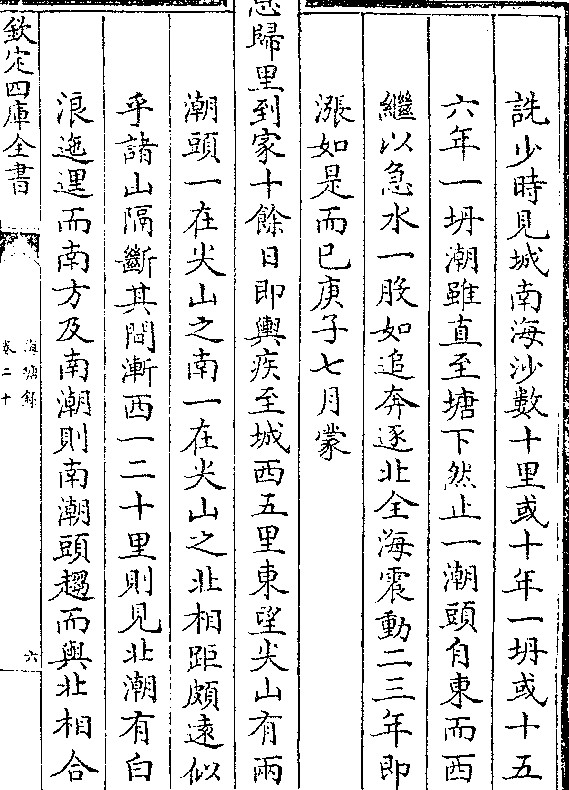 詵少時見城南海沙數十里或十年一坍或十五
六年一坍潮雖直至塘下然止一潮頭自東而西
繼以急水一股如追奔逐北全海震動二三年即
漲如是而已庚子七月蒙
恩歸里到家十餘日即輿疾至城西五里東望尖山有兩
潮頭一在尖山之南一在尖山之北相距頗遠似
乎諸山隔斷其間漸西一二十里則見北潮有白
浪迤邐而南方及南潮則南潮頭趨而與北相合
欽定四庫全書
海塘錄
卷二十
六